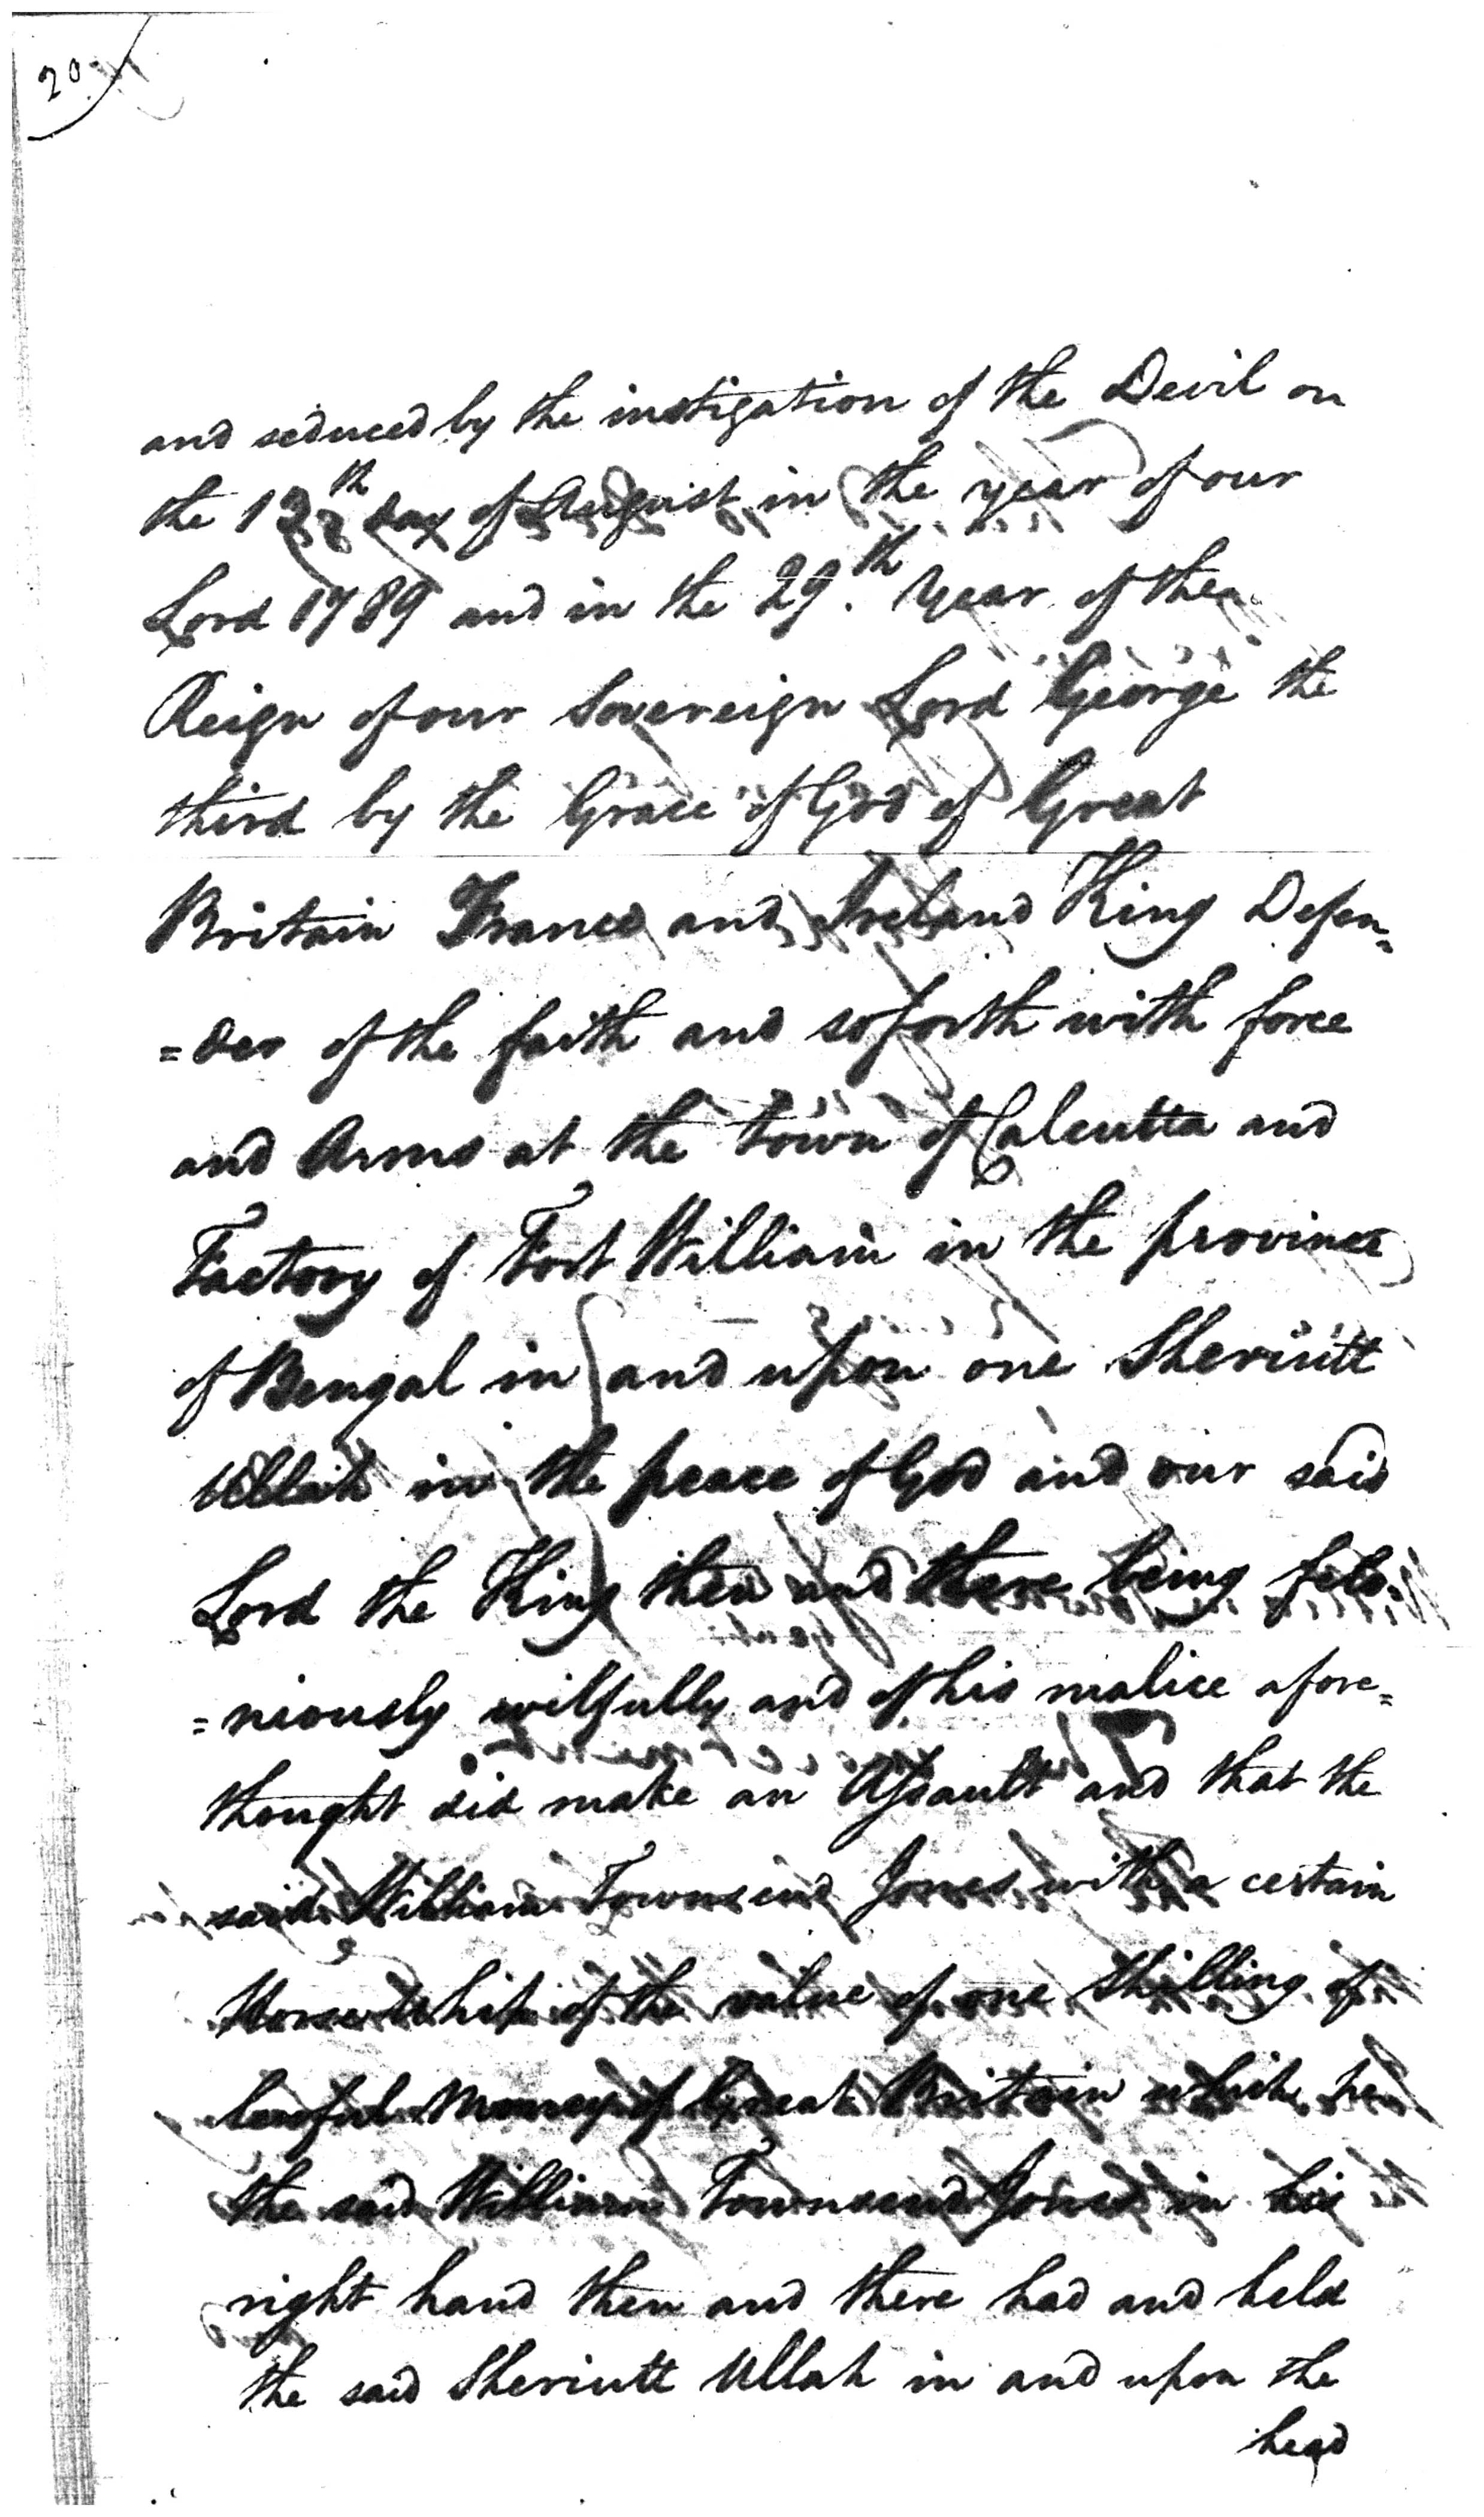 20
and seduced by the instigation of the Devil on
the 12th day of August in the year of our
Lord 1789 and in the 29th. Year of the
Reign of our Sovereign Lord George the
third by the Grace of God of Great
Britain France and Ireland King Defen=
=der of the faith and soforth with force
and Arms at the Town of Calcutta and
Factory of Fort William in the province
of Bengal in and upon one Sheriutt
Ullah in the peace of God and our said
Lord the King then and there being felo=
=niously wilfully and of his malice afore=
thought did make an Assault and that the
said William Townsend Jones with a certain
Horse Whip of the value of one Shilling of
lawful Money of Great Britain which he
the said William Townsend Jones in his
right hand then and there had and held
the said Sheriutt Ullah in and upon the
head